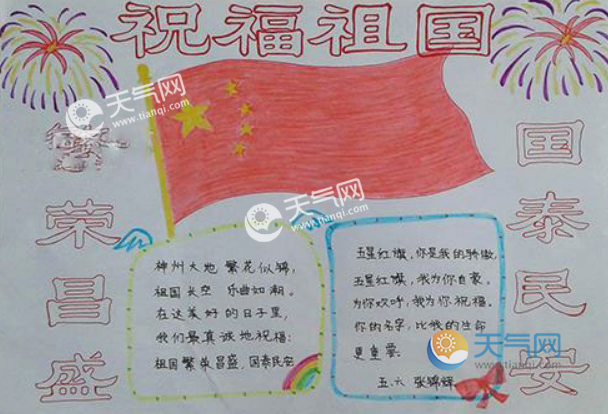 祝福祖国
繁荣昌盛
国泰民安
神州大地 繁花似锦,
祖国长空 乐曲如潮。
在这美好的日子里,
我们最真诚地祝福:
祖国繁荣昌盛、国泰民安
五星红旗,你是我的骄傲,
五星红旗,我为你自豪。
为你欢呼,我为你祝福,
你的名字,比我的生命
更重要
五.六 张锦辉
天气网
www.tianqi.com
天气网
www.tianqi.com
天气网
www.tianqi.com